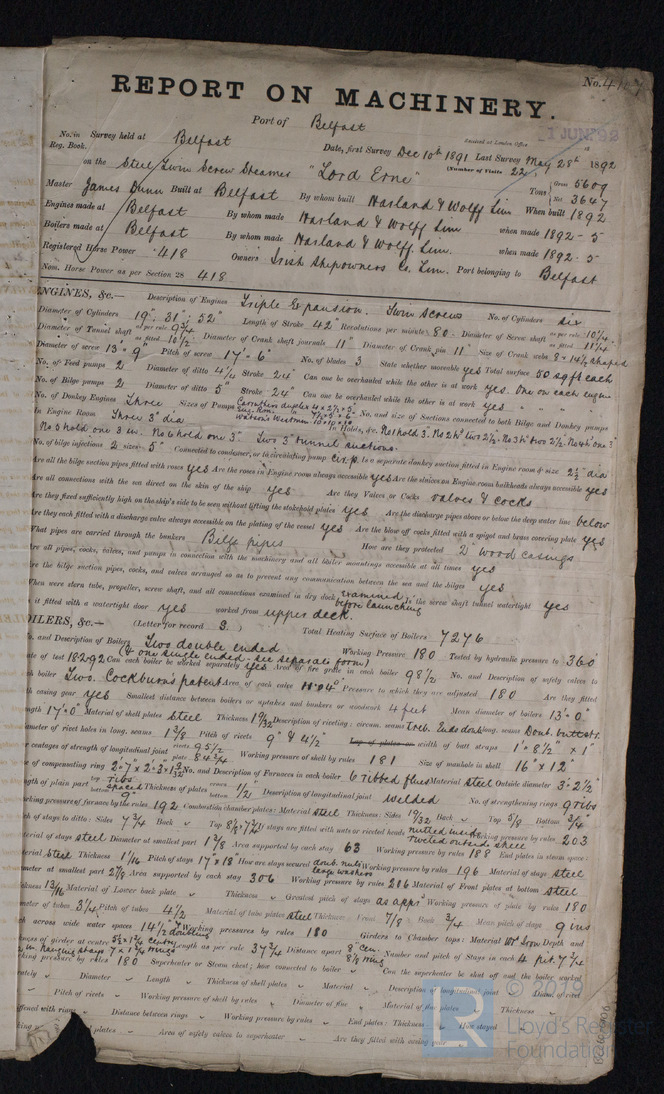 No. 4
REPORT ON MACHINERY.
Port of Belfast
Received at London Office 1 JUN 92
No. in Survey held at Belfast Date, first Survey Dec 10th 1891 Last Survey May 28th 1892
Reg. Book. (Number of Visits 22)
on the Steel Twin Screw Steamer "Lord Erne" Tons Gross 5609
Net 3647
Master James Dunn Built at Belfast By whom built Harland & Wolff Lim When built 1892
Engines made at Belfast By whom made Harland & Wolff Lim when made 1892-5
Boilers made at Belfast By whom made Harland & Wolff. Lim. when made 1892-5
Registered Horse Power 418 Owners Irish Shipowners Co. Lim. Port belonging to Belfast
Nom. Horse Power as per Section 28 418
ENGINES, &c.— Description of Engines Triple Expansion. Twin Screw No. of Cylinders six
Diameter of Cylinders 19", 31", 52" Length of Stroke 42 Revolutions per minute 80 Diameter of Screw shaft as per rule 10 1/4 as fitted 11 1/4
Diameter of Tunnel shaft as per rule 9 3/4 as fitted 10 1/2 Diameter of Crank shaft journals 11" Diameter of Crank pin 11" Size of Crank webs 8 x 14 1/2 shaped
Diameter of screw 13' 9" Pitch of screw 17' 6" No. of blades 3 State whether moveable yes Total surface 50 sq ft each
No. of Feed pumps 2 Diameter of ditto 4 1/4 Stroke 24" Can one be overhauled while the other is at work yes. One on each engine
No. of Bilge pumps 2 Diameter of ditto 5" Stroke 24" Can one be overhauled while the other is at work yes " " "
No. of Donkey Engines Three Sizes of Pumps No. and size of Suctions connected to both Bilge and Donkey pumps
In Engine Room Three 3" dia In Holds, &c. No 1 hold 3" No 2 2 1/2" two 2 1/2" No 3 2 1/2" two 2 1/2" No 4 one 3"
No 5 hold one 3 in. No 6 hold one 3". Two 3" tunnel suctions.
No. of bilge injections 2 sizes 5" Connected to condenser, or to circulating pump cir. p. Is a separate donkey suction fitted in Engine room & size 2 1/2" dia
Are all the bilge suction pipes fitted with roses yes Are the roses in Engine room always accessible yes Are the sluices on Engine room bulkheads always accessible yes
Are all connections with the sea direct on the skin of the ship yes Are they Valves or Cocks valves & cocks
Are they fixed sufficiently high on the ship's side to be seen without lifting the stokehold plates yes Are the discharge pipes above or below the deep water line below
Are they each fitted with a discharge valve always accessible on the plating of the vessel yes Are the blow off cocks fitted with a spigot and brass covering plate yes
What pipes are carried through the bunkers Bilge pipes How are they protected 2" wood casings
Are all pipes, cocks, valves, and pumps in connection with the machinery and all boiler mountings accessible at all times yes
Are the bilge suction pipes, cocks, and valves arranged so as to prevent any communication between the sea and the bilges yes
When were stern tube, propeller, screw shaft, and all connections examined in dry dock examined before launching Is the screw shaft tunnel watertight yes
Is it fitted with a watertight door yes worked from upper deck.
BOILERS, &c.— (Letter for record S.) Total Heating Surface of Boilers 7276
No. and Description of Boilers Two double ended Working Pressure 180 Tested by hydraulic pressure to 360
(& one single ended - see separate form)
Date of test 18.2.92 Can each boiler be worked separately yes Area of fire grate in each boiler 98 1/2 No. and Description of safety valves to
each boiler Two. Cockburn's patent Area of each valve 11.04" Pressure to which they are adjusted 180 Are they fitted
with easing gear yes Smallest distance between boilers or uptakes and bunkers or woodwork 4 feet Mean diameter of boilers 13' 0"
Length 17' 0" Material of shell plates Steel Thickness 1 9/32 Description of riveting: circum. seams Treb. Ends doub. long. seams Doub. butt str.
Diameter of rivet holes in long. seams 1 3/8 Pitch of rivets 9" & 4 1/2" Lap of plates or width of butt straps 1' 8 1/2" x 1"
Per centages of strength of longitudinal joint rivets 95 1/2 plate 84 3/4 Working pressure of shell by rules 181 Size of manhole in shell 16" x 12"
Size of compensating ring 2' 7" x 2' 3" x 1 9/32 No. and Description of Furnaces in each boiler 6 ribbed flues Material Steel Outside diameter 3' 2 1/2"
Length of plain part ribs spaced 9" Thickness of plates 1/2 Description of longitudinal joint welded No. of strengthening rings 9 ribs
Working pressure of furnace by the rules 192 Combustion chamber plates: Material steel Thickness: Sides 19/32 Back " Top 5/8 Bottom 3/4"
Pitch of stays to ditto: Sides 7 3/4 Back " Top 8 1/8 x 7 3/4 If stays are fitted with nuts or riveted heads nutted inside riveted outside shell Working pressure by rules 203
Material of stays steel Diameter at smallest part 1 3/8 Area supported by each stay 63 Working pressure by rules 188 End plates in steam space:
Material Steel Thickness 1 1/16 Pitch of stays 17" x 18" How are stays secured doub. nuts large washers Working pressure by rules 196 Material of stays steel
Diameter at smallest part 2 7/8 Area supported by each stay 306 Working pressure by rules 216 Material of Front plates at bottom steel
Thickness 13/16 Material of Lower back plate " Thickness " Greatest pitch of stays as appd. Working pressure of plate by rules 180
Diameter of tubes 3 1/4 Pitch of tubes 4 1/2 Material of tube plates steel Thickness: Front 7/8 Back 3/4 Mean pitch of stays 9 ins
Pitch across wide water spaces 14 1/2" doubling Working pressures by rules 180 Girders to Chamber tops: Material Wt Iron Depth and
thickness of girder at centre Length as per rule 37 3/4 Distance apart 8" cen. 8 1/8 wing Number and pitch of Stays in each 4 pit. 7 3/4
Working pressure by rules 180 Superheater or Steam chest; how connected to boiler " Can the superheater be shut off and the boiler worked
separately " Diameter " Length " Thickness of shell plates " Material " Description of longitudinal joint " Diam. of rivet
" Pitch of rivets " Working pressure of shell by rules " Diameter of flue " Material of flue plates " Thickness "
stiffened with rings Distance between rings " Working pressure by rules " End plates: Thickness " How stayed "
plates " Area of safety valves to superheater " Are they fitted with easing gear
© 2019
Lloyd's Register
Foundation
LR